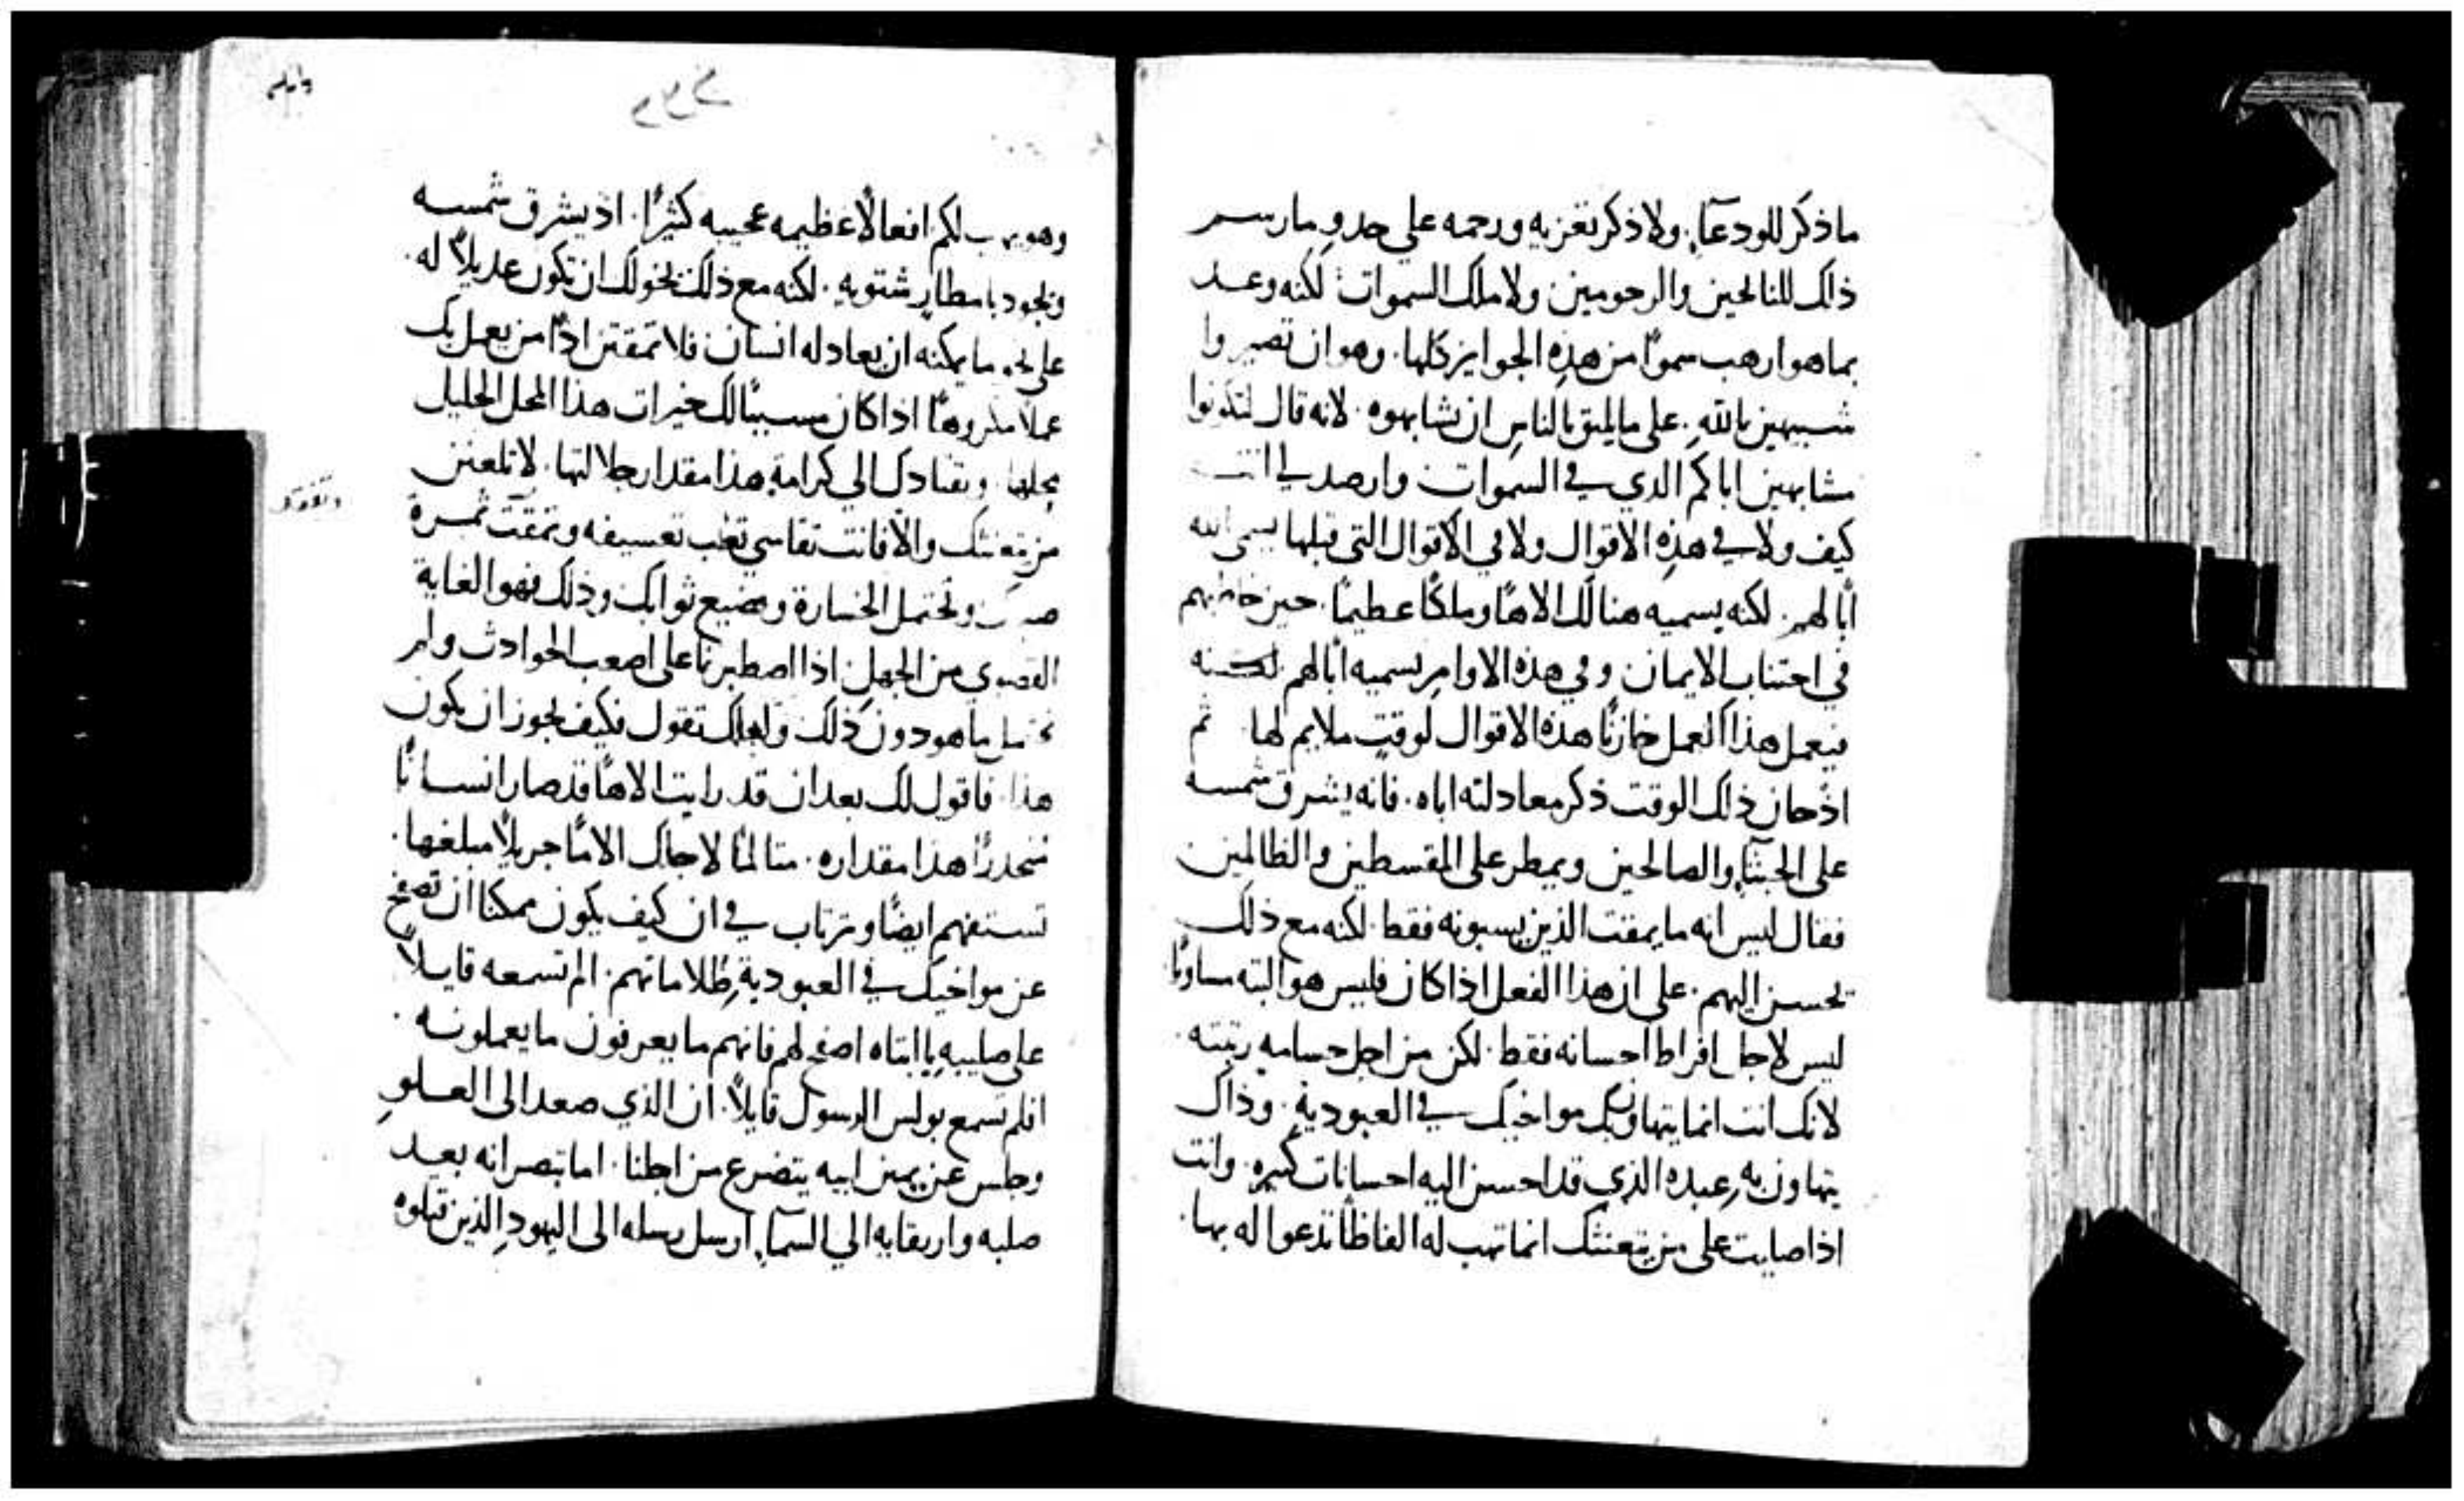 ماذكر للودعآءِ. ولا ذكر تعزيه ورحمه على حدوِ مارسم
ذلك للنايحين والمرحومين ولا ملك السموات لكنه وعد
بماهو ارهب سموًا من هذهِ الجوايز كلها. وهو ان تصيروا
شبيهين باللهِ. على مايليق بالناسِ ان يشابهوه. لانه قال لتكونوا
مشابهين اباكم الذي في السموات وارصد لي انت
كيف ولا في هذهِ الاقوال ولا في الاقوال التي قبلها يسمى الله
ابًا لهم. لكنه يسميه هنالك الاهًا وملكًا عظيمًا. حين خاطبهم
في اجتناب الايمان وفي هذه الاوامرِ يسميه ابًا لهم لكنه
فيعمل هذا العمل خازنًا هذه الاقوال لوقتٍ ملايم لها ثم
اذ حان ذلك الوقت ذكر معادلته اباه. فانه يشرق شمسه
على الخبثآءِ والصالحين ويمطر على المقسطين والظالمين
فقال ليس انه مايمقت الذين يسبونه فقط. لكنه مع ذلك
يحسن اليهم. على ان هذا الفعل اذا كان فليس هو البته مساويًا
ليس لاجل افراط احسانه فقط. لكن من اجل جسامه رتبته
لانك انت انما يتهاون بك مواخيك في العبوديةِ. وذاك
يتهاون به عبده الذي قد احسن اليه احسانات كثيره. وانت
اذا صليت على من يعنتك انما تهب له الفاظًا تدعوا له بها.
وهو يهب لكم افعالًا عظيمه عجيبه كثيرًا. اذ يشرق شمسه
ويجود بامطارٍ شتويهِ. لكنه مع ذلك يخولك ان تكون عديلًا له.
على نحو مايمكنه ان يعادله انسان فلا تمقتن اذًا من يعمل بك
عملًا مكروهًا اذا كان مسببًا لك خيرات هذا المحل الجليل
محلها ويقتادك الي كرامةِ هذا مقدار جلالتها. لا تلعنن
من يعنتك والا فانت تقاسي تعب تعسيفه وتمقت ثمرة
وتحتمل الخسارة وتضيع ثوابك وذلك فهو الغاية
القصوي من الجهل اذا اصطبرنا على اصعب الحوادث ولم
نحتمل ماهو دون ذلك ولعلك تقول فكيف يجوز ان يكون
هذا. فاقول لك بعد ان قد رايت الاهًا قد صار انسانًا
منحدرًا هذا مقداره. متالمًا لاجلك الامًا جزيلًا مبلغها.
تستفهم ايضًا وترتاب في ان كيف يكون ممكنا ان تصفح
عن مواخيك في العبوديةِ ظلاماتهم. الم تسمعه قايلًا
على صليبهِ يا ابتاه اصفح لهم فانهم ما يعرفون ما يعملونه.
افلم تسمع بولس الرسول قايلًا. ان الذي صعد الى العلوِ
وجلس عن يمين ابيه يتضرع من اجلنا. اما تبصر انه بعد
صلبه وارتقايه الي السمآءِ ارسل رسله الى اليهودِ الذين قتلوه